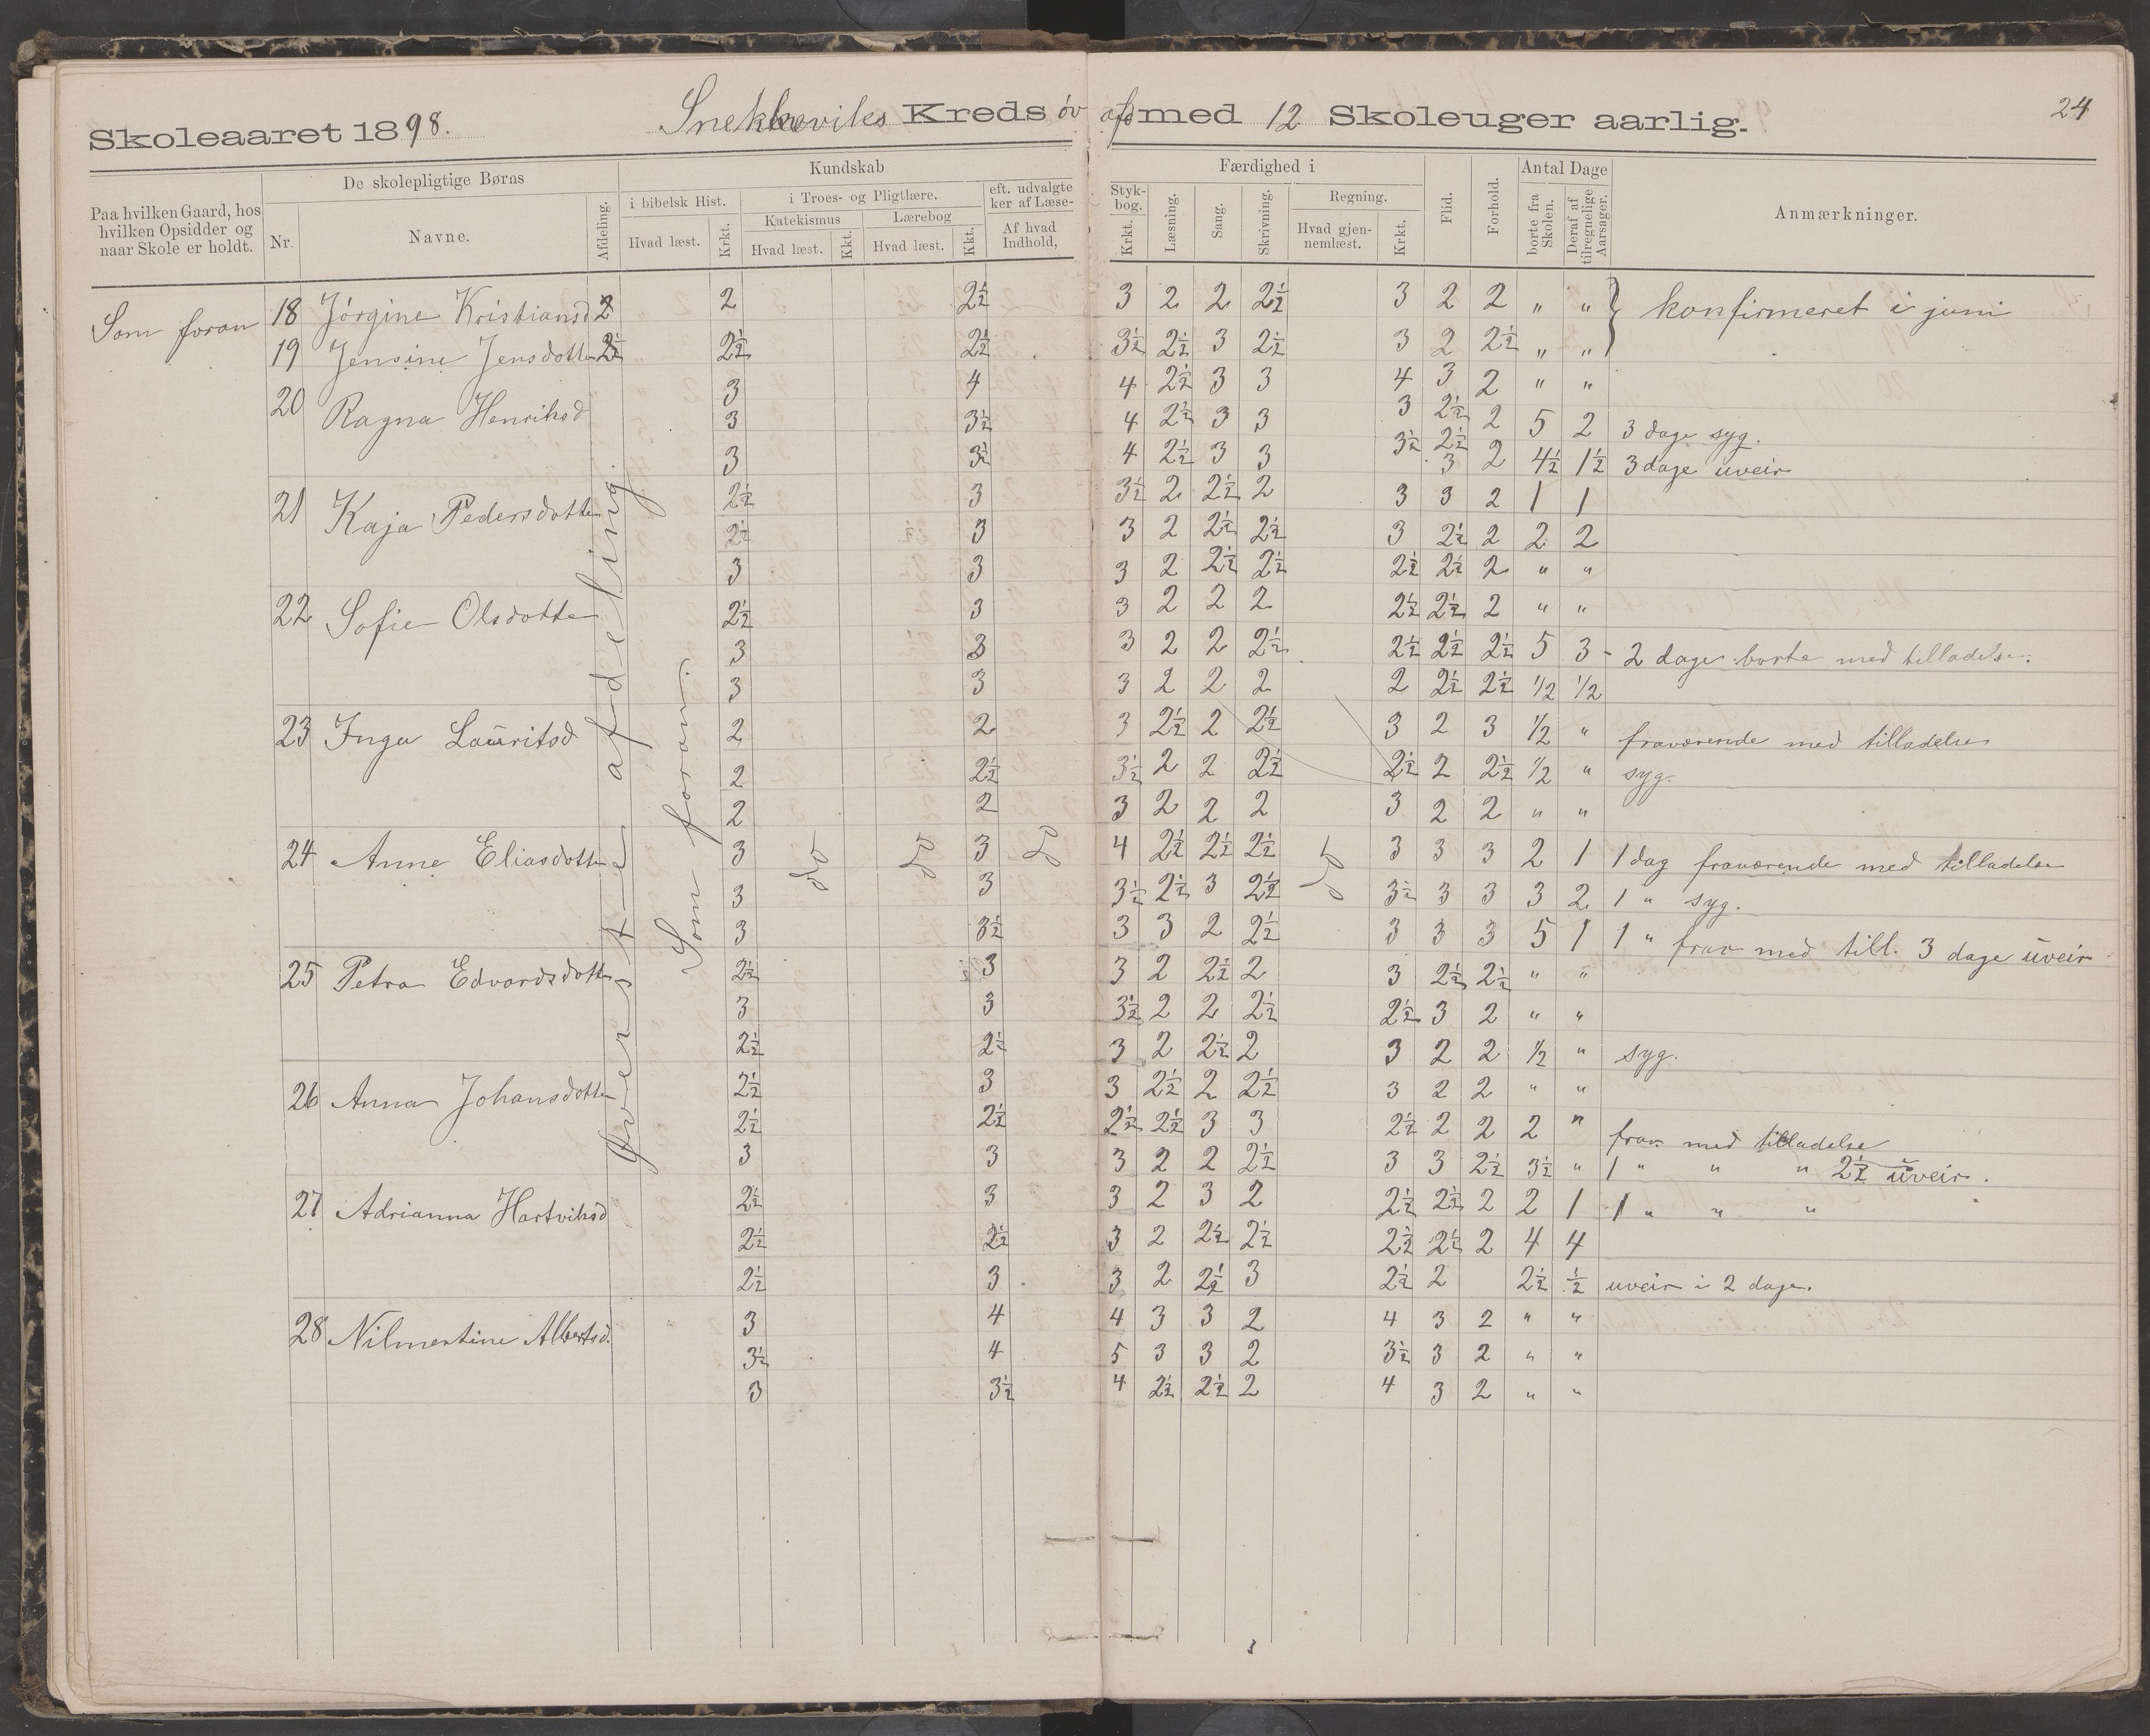 24
Skoleaaret 1898. Snekkeviks Kreds öv afd med 12 Skoleuger aarlig.
Paa hvilken Gaard, hos hvilken Opsidder og naar Skole er holdt.
De skolepligtige Børns
Nr. Navne. Afdeling.
Kundskab
i bibelsk Hist. i Troes- og Pligtlære. eft. udvalgte Stykker af Læsebog.
Katekismus Lærebog
Hvad læst. Krkt. Hvad læst. Kkt. Hvad læst. Kkt. Af hvad Indhold, Krkt.
Færdighed i
Læsning. Sang. Skrivning. Regning.
Hvad gjennemlæst. Krkt.
Flid. Forhold.
Antal Dage
borte fra Skolen. Deraf af tilregnelige Aarsager.
Anmærkninger.
Som foran 18 Jörgine Kristiansd 2 2 2½ 3 2 2 2½ 3 2 2 " " } konfirmeret i juni
19 Jensine Jensdotter 2½ 2½ 2½ 3½ 2½ 3 2½ 3 2 2½ " "
20 Ragna Henriksd 3 4 4 2½ 3 3 4 3 2 " "
3 3½ 4 2½ 3 3 3 2½ 2 5 2 3 dage syg.
3 3½ 4 2½ 3 3 3½ 2½ 3 2 4½ 1½ 3 dage uveir
21 Kaja Pedersdotter 2½ 3 3½ 2 2½ 2 3 3 2 1 1
2½ 3 3 2 2½ 2½ 3 2½ 2 2 2
3 3 3 2 2½ 2½ 2½ 2½ 2 " "
22 Sofie Olsdotter 2½ 3 3 2 2 2 2½ 2½ 2 " "
3 3 3 2 2 2½ 2½ 2½ 2½ 5 3 - 2 dage borte med tilladelse.
3 3 3 2 2 2 2 2½ 2½ 1/2 1/2
23 Inga Lauritsd 2 2 3 2½ 2 2½ 3 2 3 1/2 " fraværende med tilladelse
2 2½ 3½ 2 2 2½ 2½ 2 2½ 1/2 " syg.
2 2 3 2 2 2 3 2 2 " "
24 Anne Eliasdotter 3 do do 3 do 4 2½ 2½ 2½ do 3 3 3 2 1 1 dag fraværende med tilladelse
3 3 3½ 2½ 3 2½ 3½ 3 3 3 2 1 " syg.
3 3½ 3 3 2 2½ 3 3 3 5 1 1 " frav med till. 3 dage uveir
25 Petra Edvardsdotter 2½ 3 3 2 2½ 2 3 2½ 2½ " "
3 3 3½ 2 2 2½ 2½ 3 2 " "
2½ 2½ 3 2 2½ 2 3 2 2 1/2 " syg.
26 Anna Johansdotter 2½ 3 3 2½ 2 2½ 3 2 2 " "
2½ 2½ 2½ 2½ 3 3 2½ 2 2 2 " frav. med tilladelse
3 3 3 2 2 2½ 3 3 2½ 3½ " 1 " " " 2½ uveir.
27 Adrianna Hartviksd 2½ 3 3 2 3 2 2½ 2½ 2 2 1 1 " " "
2½ 2½ 3 2 2½ 2½ 2½ 2½ 2 4 4
2½ 3 3 2 2½ 3 2½ 2 2½ ½ uveir i 2 dage.
28 Nilmertine Albertsd. 3 4 4 3 3 2 4 3 2 " "
3½ 4 5 3 3 2 3½ 3 2 " "
3 3½ 4 2½ 2½ 2 4 3 2 " "
Øverste afdeling.
Som foran.